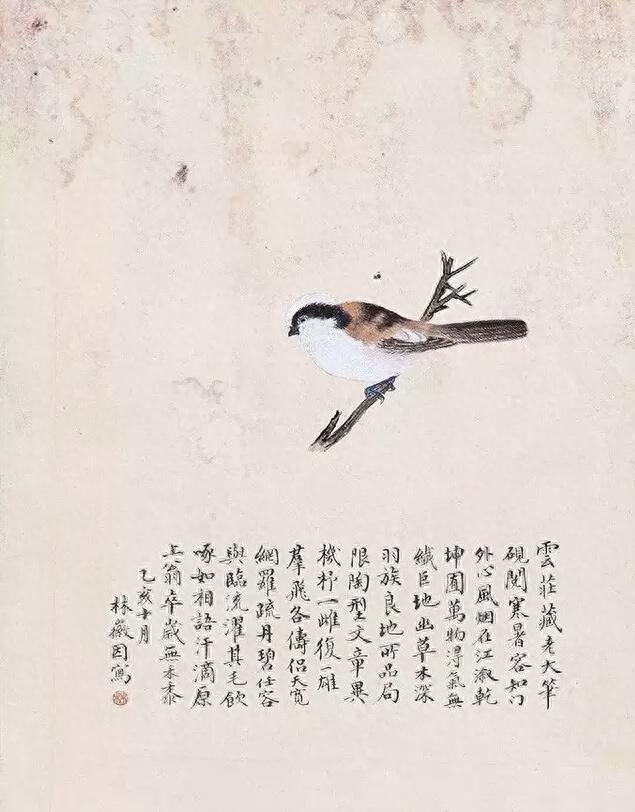 雲莊藏老大筆
硯閱寒暑容知門
外心風烟在江溆乾
坤囿萬物淂氣無
纖巨地幽草木深
羽族良地所品局
限陶型文章異
機杼一雌復一雄
羣飛各儔侶天寬
網羅疏丹碧任容
與臨流濯其毛飲
啄如相語汗滴原
上翁卒歲無禾黍
乙亥十月
林徽因寫